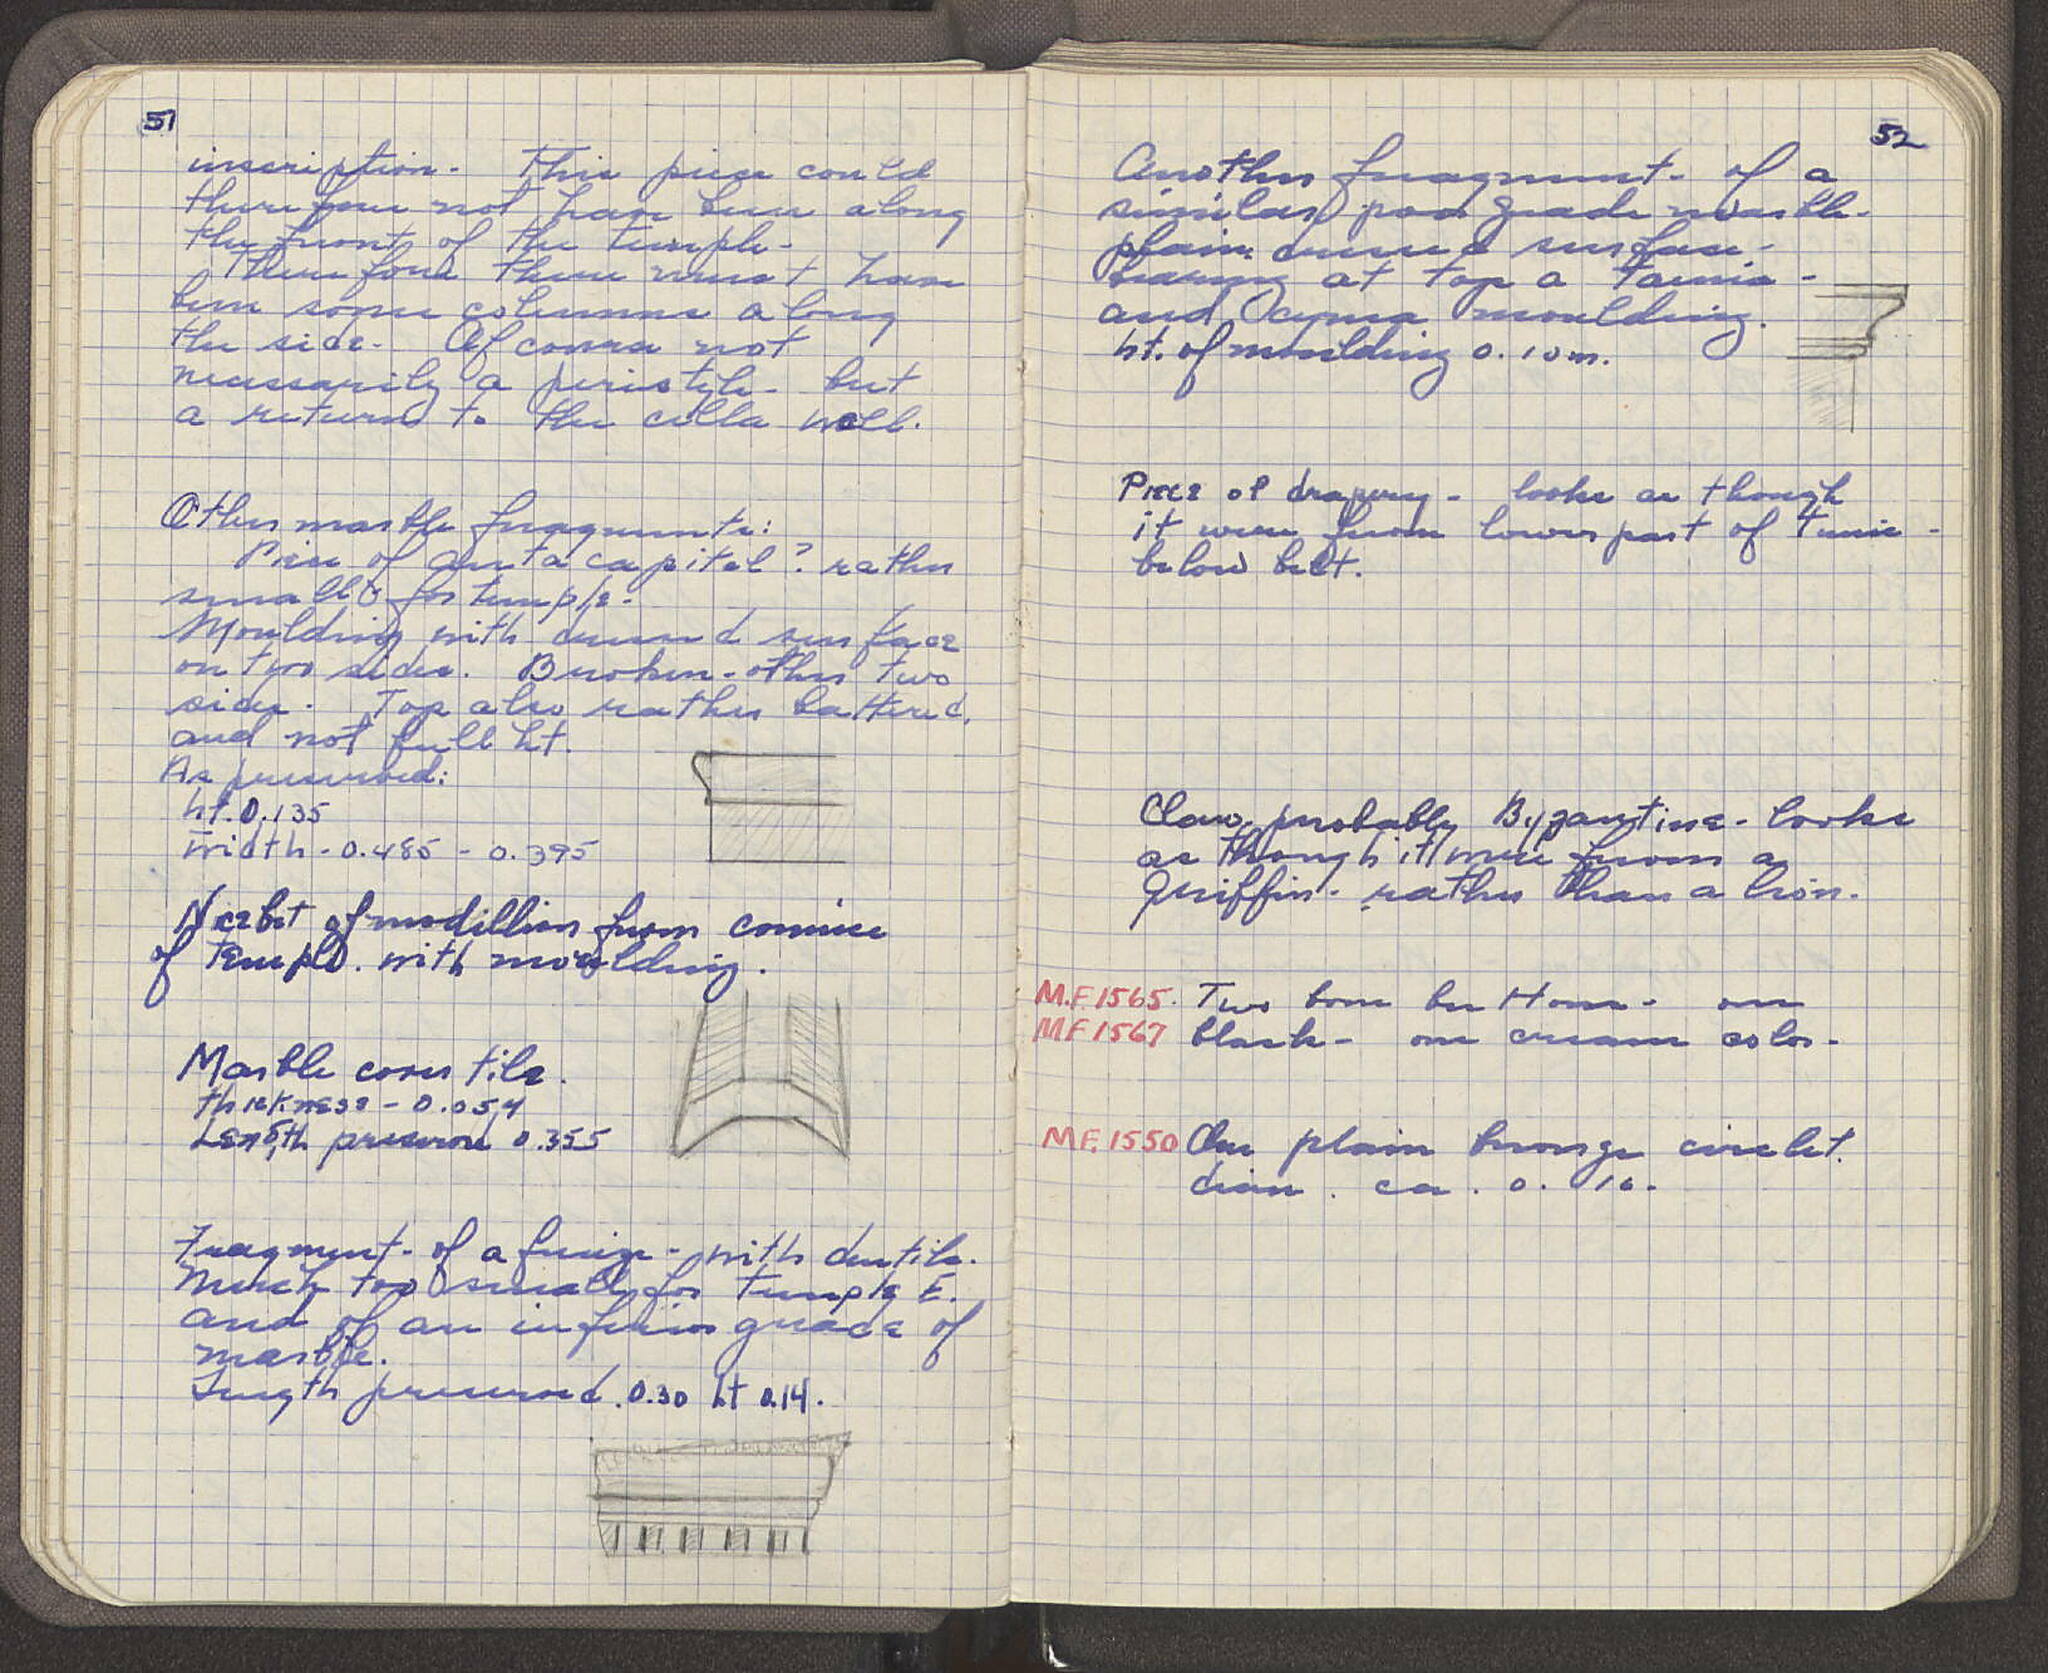 51
inscription. This piece could
therefore not have been along
the front of the temple.
Therefore there must have
been some columns along
the side. Of course not
necessarily a peristyle - but
a return to the cella wall.
Other marble fragments:
Piece of anta capital? rather
small for temple.
Moulding with curved surface
on two sides. Broken - other two
sides. Top also rather battered,
and not full ht.
As preserved:
ht. 0.135
width - 0.485 - 0.395
of modillion from cornice
of temple. with moulding.
Marble cover tile.
thickness - 0.054
Length preserved 0.355
Fragment - of a frieze - with dentils.
Much too small for Temple E.
and of an inferior grade of
marble.
Length preserved. 0.30 ht 0.14.
52
Another fragment - of a
similar poor grade marble -
plain curved surface -
bearing at top a taenia -
and cyma moulding.
ht. of moulding 0.10 m.
Piece of drapery - looks as though
it were from lower part of tunic -
below belt.
Claw, probably Byzantine - looks
as though it were from a
griffin - rather than a lion.
M.F. 1565. Two bone buttons - one
MF 1567 black - one cream color -
M.F. 1550 One plain bronze circlet.
diam. ca. 0.